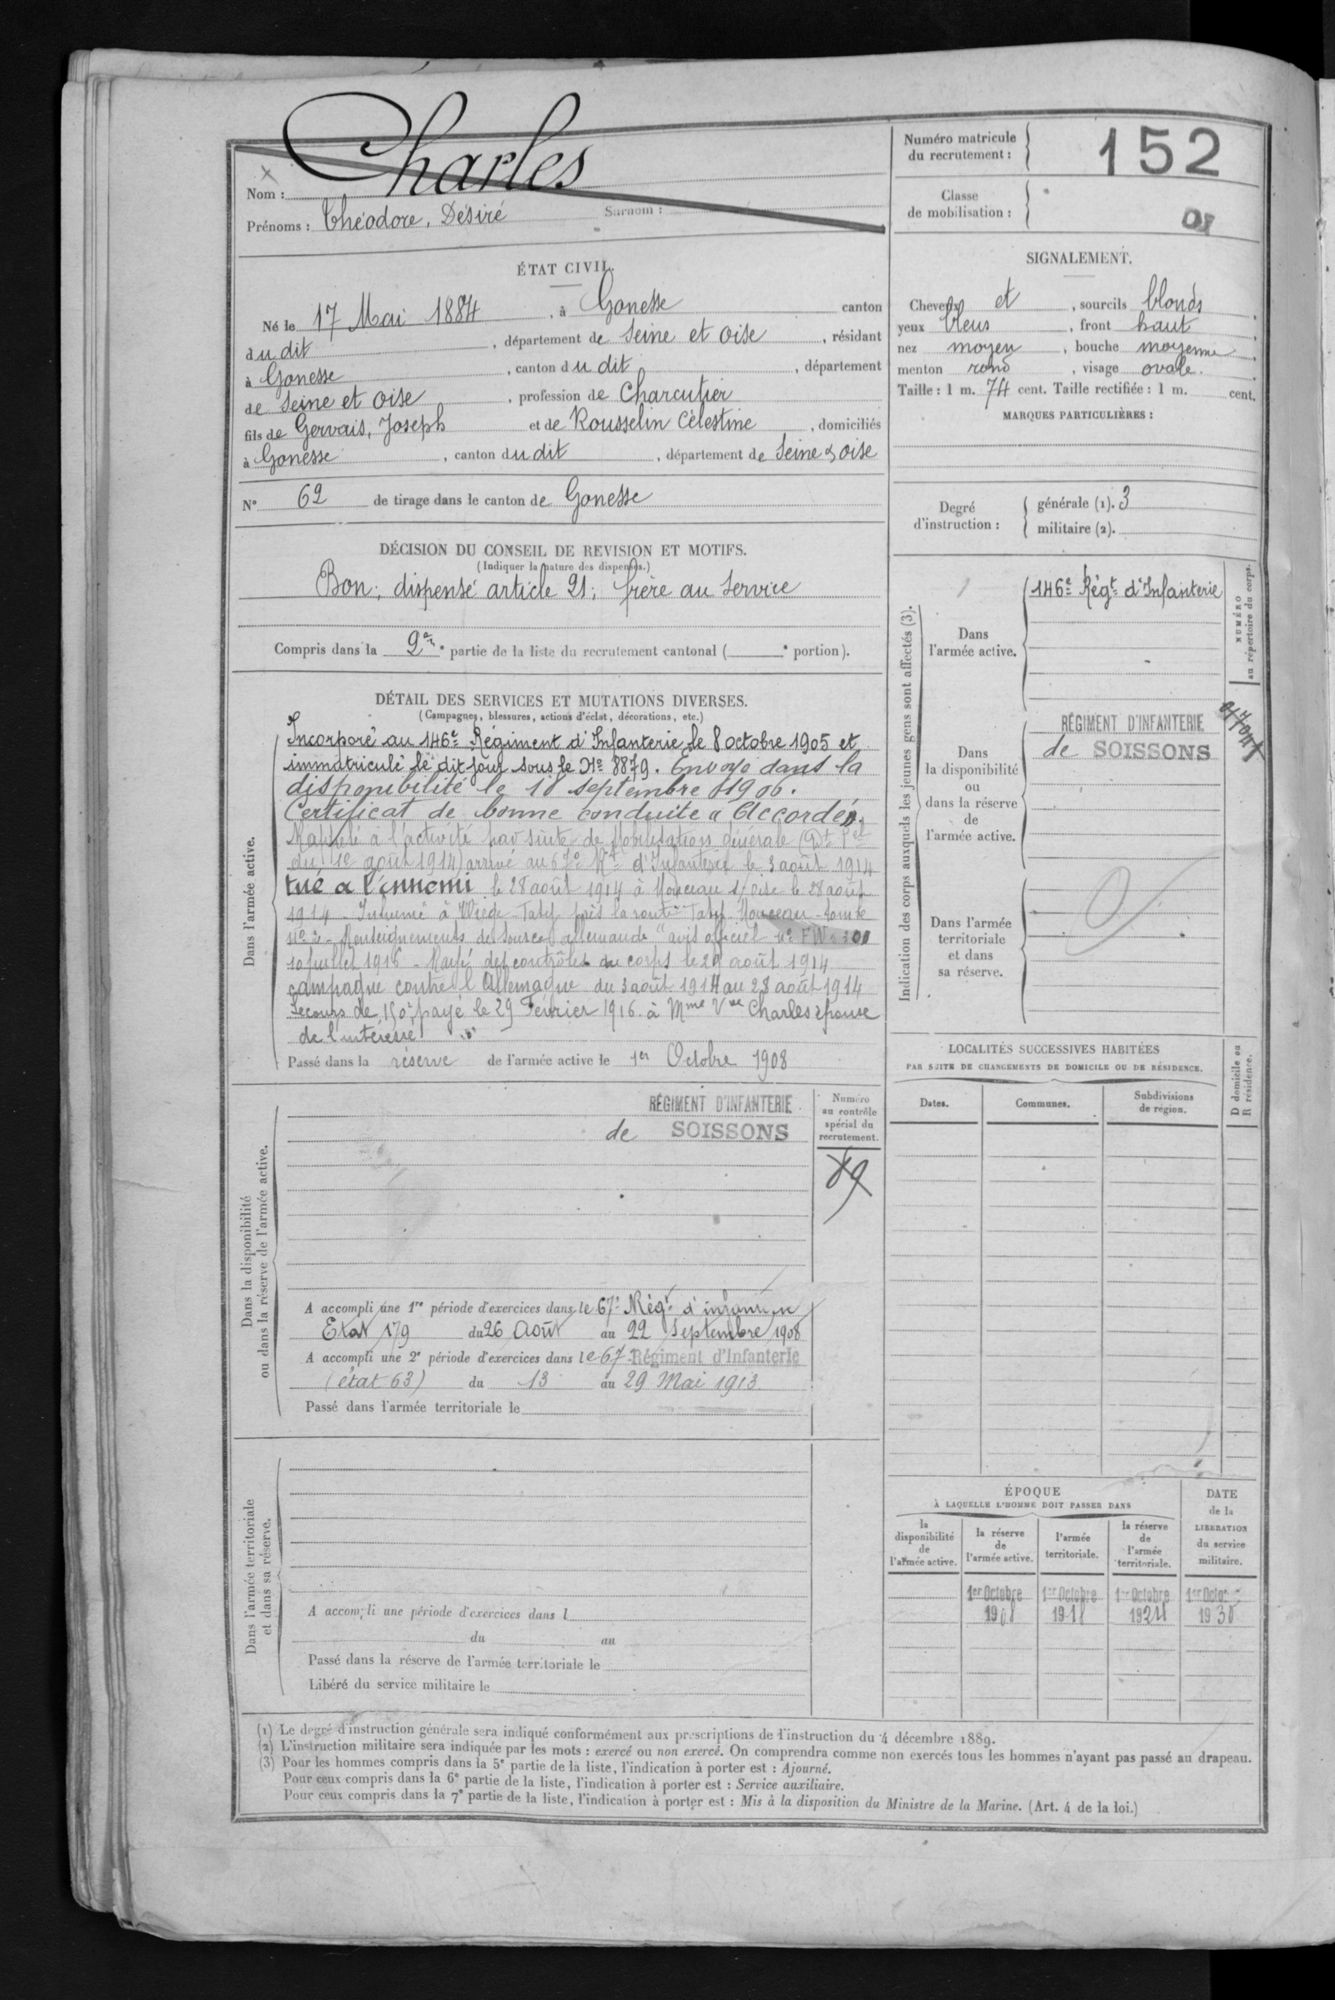 Charles
Nom :
Prénoms : Théodore, Désiré Surnom :
Numéro matricule du recrutement : 152
Classe de mobilisation :
ÉTAT CIVIL.
Né le 17 Mai 1884, à Gonesse canton
du dit, département de Seine et Oise, résidant
à Gonesse, canton du dit, département
de Seine et Oise, profession de Charcutier
fils de Gervais, Joseph et de Rousselin Célestine, domiciliés
à Gonesse, canton du dit, département de Seine & Oise
N° 62 de tirage dans le canton de Gonesse
DÉCISION DU CONSEIL DE REVISION ET MOTIFS.
(Indiquer la nature des dispenses.)
Bon; dispensé article 21; frère au service
Compris dans la 2e partie de la liste du recrutement cantonal ( e portion).
SIGNALEMENT.
Cheveux et, sourcils blonds
yeux bleus, front haut
nez moyen, bouche moyenne
menton rond, visage ovale.
Taille : 1 m. 74 cent. Taille rectifiée : 1 m. cent.
MARQUES PARTICULIÈRES :
Degré d'instruction :
générale (1). 3
militaire (2).
DÉTAIL DES SERVICES ET MUTATIONS DIVERSES.
(Campagnes, blessures, actions d'éclat, décorations, etc.)
Dans l'armée active.
Incorporé au 146e Régiment d'Infanterie le 8 octobre 1905 et
immatriculé le dit jour sous le No 8879. Envoyé dans la
disponibilité le 18 septembre 1906.
Certificat de bonne conduite "Accordé".
Rappelé à l'activité par suite de Mobilisation générale (Dt Pel
du 1er août 1914) arrivé au 67e Rt d'Infanterie le 3 août 1914
tué à l'ennemi le 28 août 1914 à Monceau s/ oise le 28 août
1914 - Inhumé à Wiège-Faty près la route Faty Monceau - tombe
Renseignements de source allemande "avis officiel
10 juillet 1916 - Rayé des contrôles du corps le 29 août 1914
campagne contre l'Allemagne du 3 août 1914 au 28 août 1914
Secours de 150f payé le 29 Février 1916 à Mme Vve Charles épouse
de l'intéressé
Passé dans la réserve de l'armée active le 1er Octobre 1908
Indication des corps auxquels les jeunes gens sont affectés (3).
Dans l'armée active.
146e Régt d'Infanterie
NUMÉRO au répertoire du corps.
Dans la disponibilité ou dans la réserve de l'armée active.
RÉGIMENT D'INFANTERIE
de SOISSONS
Dans l'armée territoriale et dans sa réserve.
Dans la disponibilité ou dans la réserve de l'armée active.
RÉGIMENT D'INFANTERIE
de SOISSONS
Numéro au contrôle spécial du recrutement.
89
A accompli une 1re période d'exercices dans le 67e Régt d'infanterie
Etat 179 du 26 Août au 22 Septembre 1908
A accompli une 2e période d'exercices dans le 67e Régiment d'Infanterie
(état 63) du 13 au 29 Mai 1913
Passé dans l'armée territoriale le
LOCALITÉS SUCCESSIVES HABITÉES
PAR SUITE DE CHANGEMENTS DE DOMICILE OU DE RÉSIDENCE.
D domicile ou R résidence.
Dates. Communes. Subdivisions de région.
Dans l'armée territoriale et dans sa réserve.
A accompli une période d'exercices dans l
du au
Passé dans la réserve de l'armée territoriale le
Libéré du service militaire le
ÉPOQUE
À LAQUELLE L'HOMME DOIT PASSER DANS
DATE de la LIBÉRATION du service militaire.
la disponibilité de l'armée active.
la réserve de l'armée active.
l'armée territoriale.
la réserve de l'armée territoriale.
1er Octobre 1er Octobre 1er Octobre 1er Octobre
1908 1918 1924 1930
(1) Le degré d'instruction générale sera indiqué conformément aux prescriptions de l'instruction du 4 décembre 1889.
(2) L'instruction militaire sera indiquée par les mots : exercé ou non exercé. On comprendra comme non exercés tous les hommes n'ayant pas passé au drapeau.
(3) Pour les hommes compris dans la 5e partie de la liste, l'indication à porter est : Ajourné.
Pour ceux compris dans la 6e partie de la liste, l'indication à porter est : Service auxiliaire.
Pour ceux compris dans la 7e partie de la liste, l'indication à porter est : Mis à la disposition du Ministre de la Marine. (Art. 4 de la loi.)